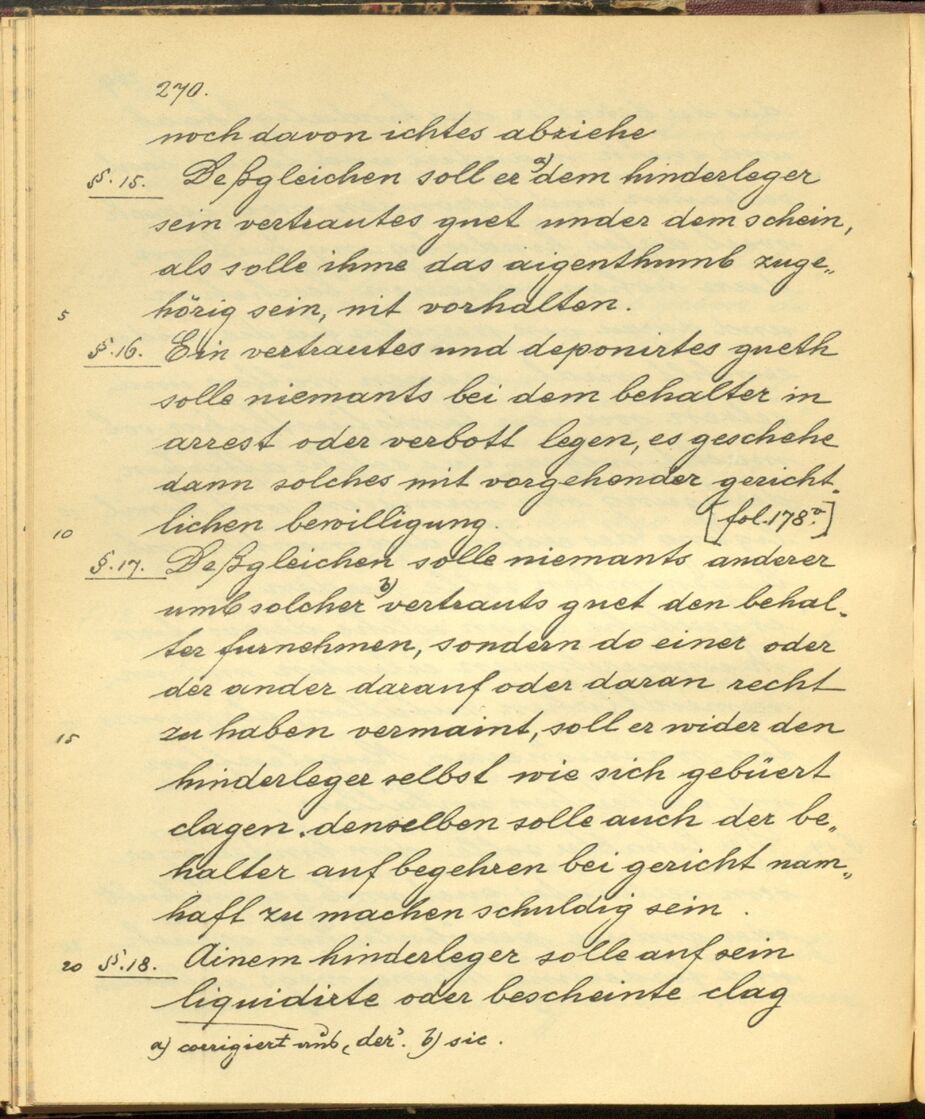 270.
noch davon ichtes abziehe
§. 15. Deßgleichen soll er a) dem hinderleger
sein vertrautes guet under dem schein,
als solle ihme das aigenthumb zuge„
5 hörig sein, nit vorhalten.
§. 16. Ein vertrautes und deponirtes gueth
solle niemants bei dem behalter in
arrest oder verbott legen, es geschehe
dann solches mit vorgehender gericht„
10 lichen bewilligung. [fol. 178.v]
§. 17. Deßgleichen solle niemants anderer
umb solcher b) vertrauts guet den behal„
ter furnehmen, sondern do einer oder
der ander darauf oder daran recht
15 zu haben vermaint, soll er wider den
hinderleger selbst wie sich gebüert
clagen, denselben solle auch der be„
halter auf begehren bei gericht nam„
haft zu machen schuldig sein.
20 §. 18. Ainem hinderleger solle auf sein
liquidirte oder bescheinte clag
a) corrigiert aus „der“. b) sic.